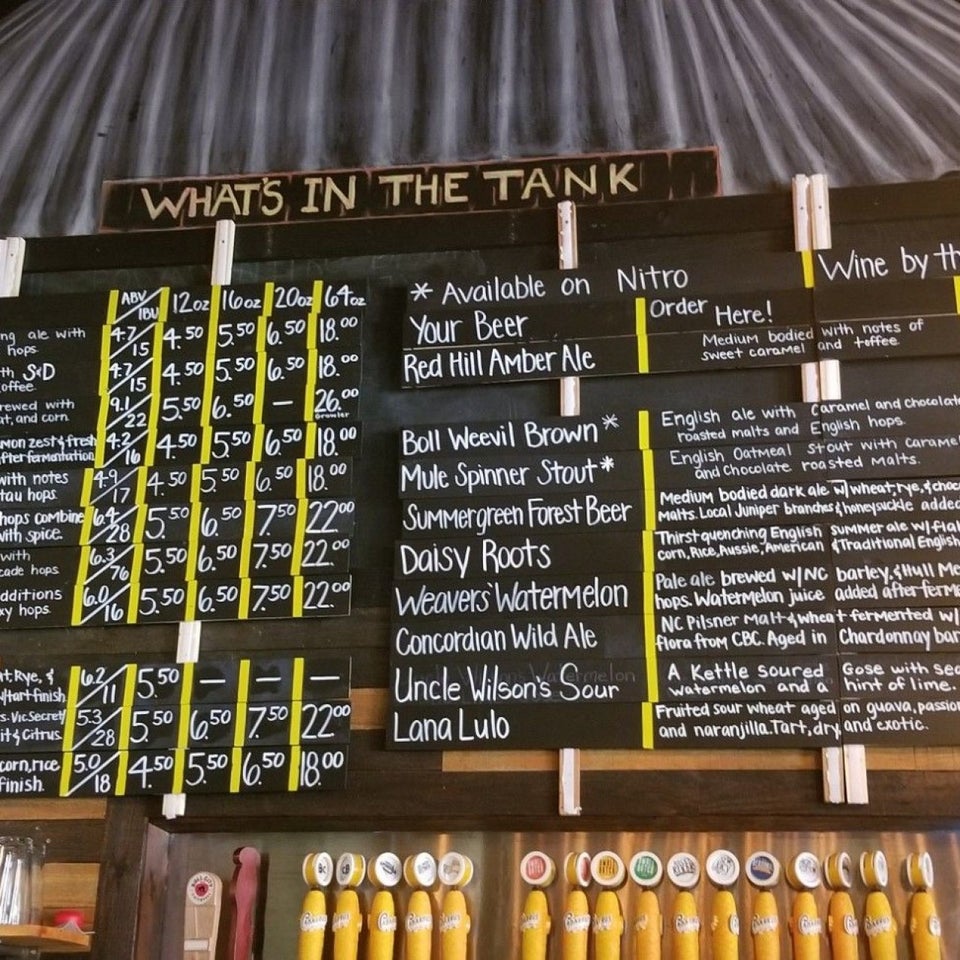 WHAT'S IN THE TANK
ABV/IBU 12oz 16oz 20oz 64oz
ng ale with hops. 4.7/15 4.50 5.50 6.50 18.00
th S&D offee. 4.7/15 4.50 5.50 6.50 18.00
rewed with at, and corn. 9.1/22 5.50 6.50 — 26.00 Growler
mon zest & fresh after fermentation. 4.2/16 4.50 5.50 6.50 18.00
with notes tau hops. 4.9/17 4.50 5.50 6.50 18.00
hops combine with spice. 6.4/28 5.50 6.50 7.50 22.00
with cade hops. 6.3/76 5.50 6.50 7.50 22.00
dditions xy hops. 6.0/16 5.50 6.50 7.50 22.00
t, Rye, & /tart finish. 6.2/11 5.50 — — —
s. Vic Secret it & Citrus. 5.3/28 5.50 6.50 7.50 22.00
corn, rice finish. 5.0/18 4.50 5.50 6.50 18.00
* Available on Nitro
Your Beer Order Here!
Red Hill Amber Ale Medium bodied with notes of
sweet caramel and toffee.
Boll Weevil Brown* English ale with Caramel and chocolate
roasted malts and English hops.
Mule Spinner Stout* English Oatmeal Stout with Caramel
and Chocolate roasted malts.
Summergreen Forest Beer Medium bodied dark ale w/ wheat, rye, & choc
Malts. Local Juniper branches & honeysuckle added
Daisy Roots Thirst quenching English summer ale w/ fla
corn, Rice, Aussie, American & Traditional English
Weavers' Watermelon Pale ale brewed w/ NC barley, & Hull Me
hops. Watermelon juice added after ferme
Concordian Wild Ale NC Pilsner Malt & wheat fermented w/
flora from CBC. Aged in Chardonnay bar
Uncle Wilson's Sour A Kettle soured Gose with sea
watermelon and a hint of lime.
Lana Lulo Fruited sour wheat aged on guava, passion
and naranjilla. Tart, dry and exotic.
Wine by th